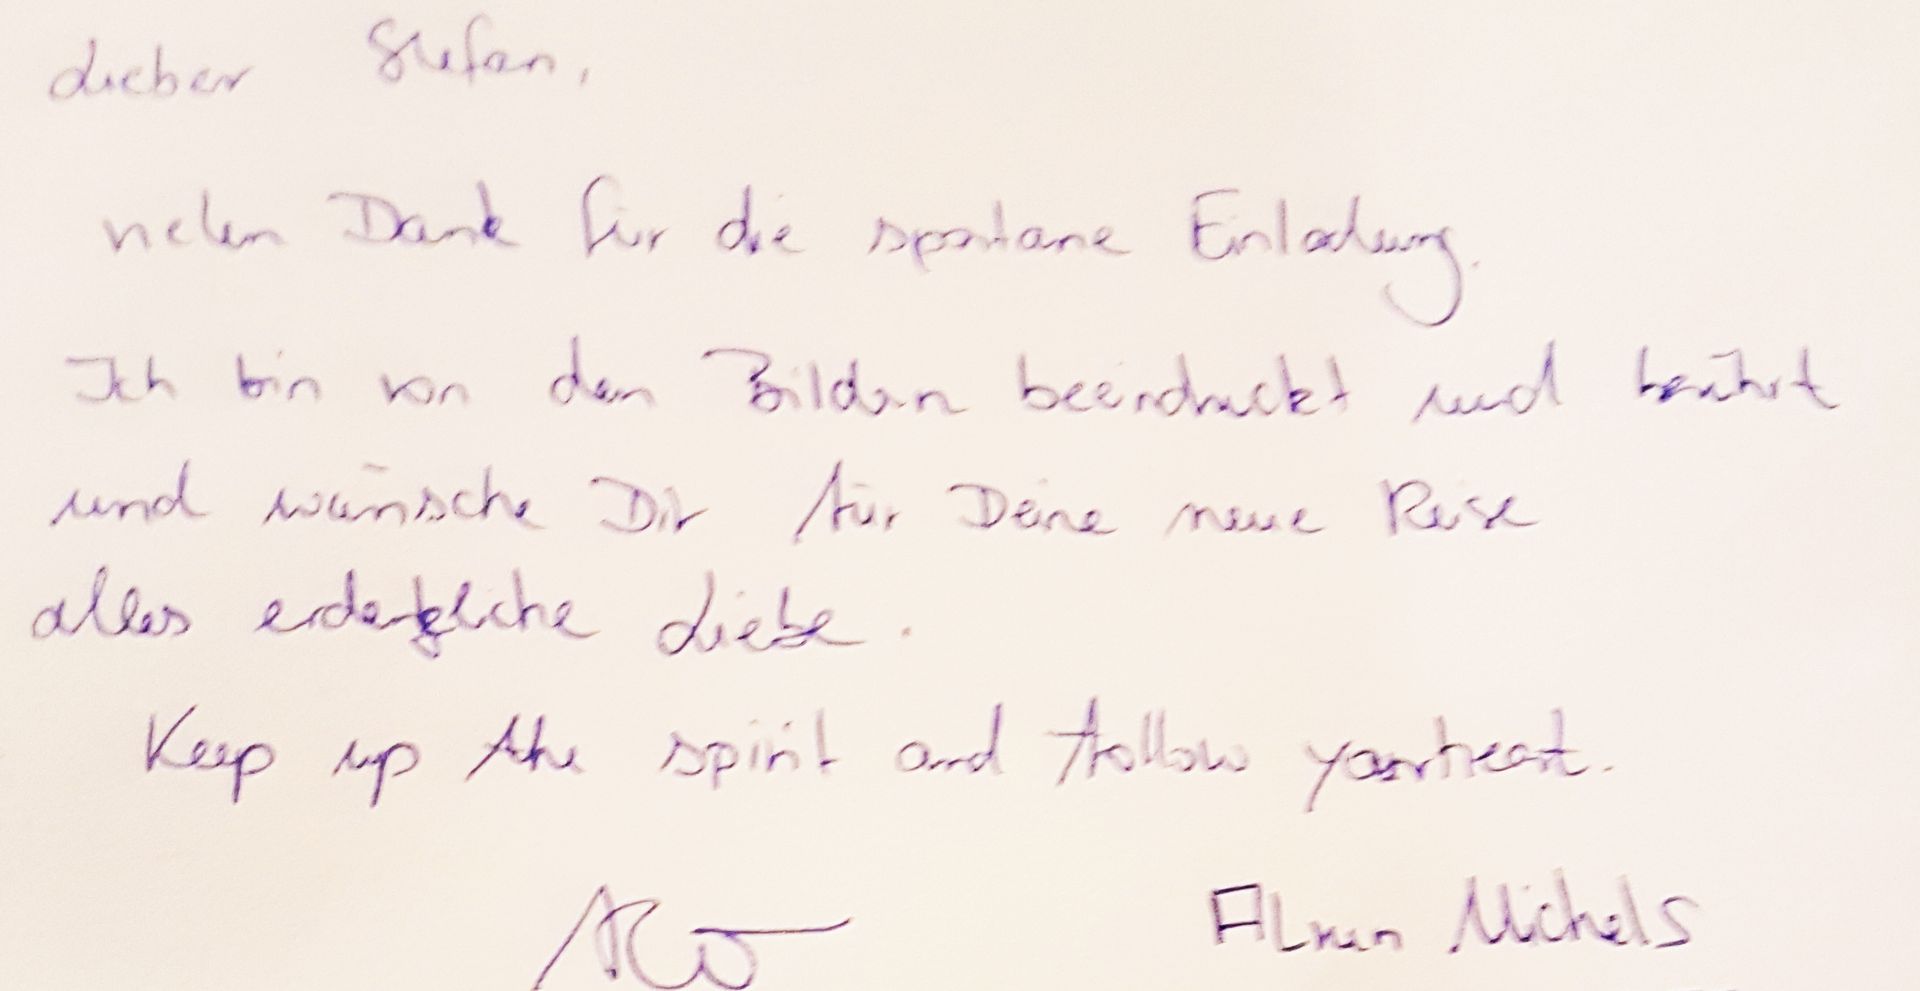 Lieber Stefan,
vielen Dank für die spontane Einladung.
Ich bin von den Bildern beeindruckt und berührt
und wünsche Dir für Deine neue Reise
alles erdenkliche Liebe.
Keep up the spirit and follow your heart.
Michels